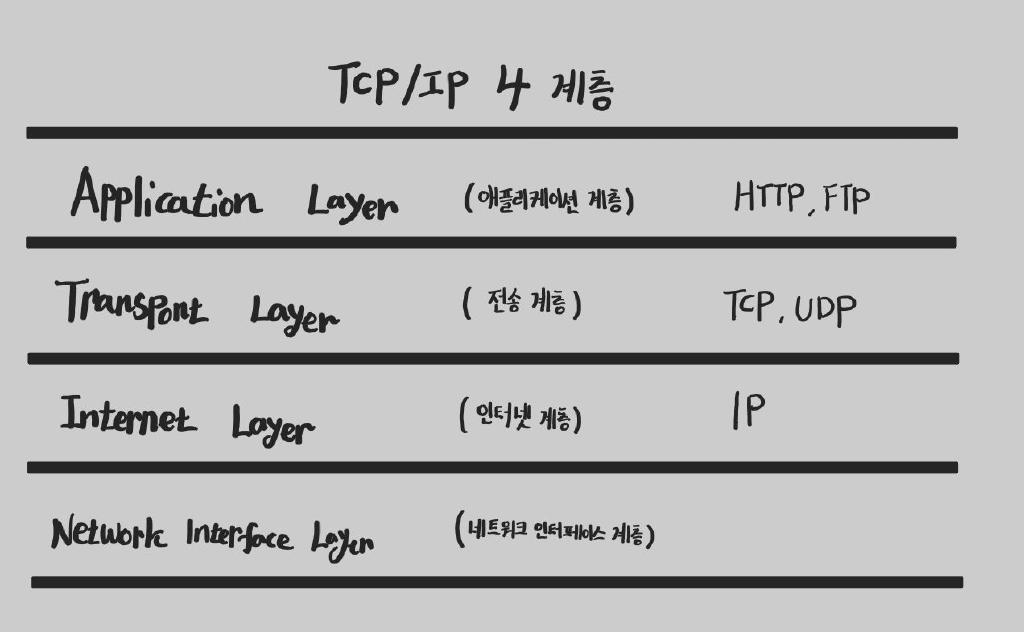 TCP/IP 4 계층
Application Layer (애플리케이션 계층) HTTP, FTP
Transport Layer (전송 계층) TCP, UDP
Internet Layer (인터넷 계층) IP
Network Interface Layer (네트워크 인터페이스 계층)